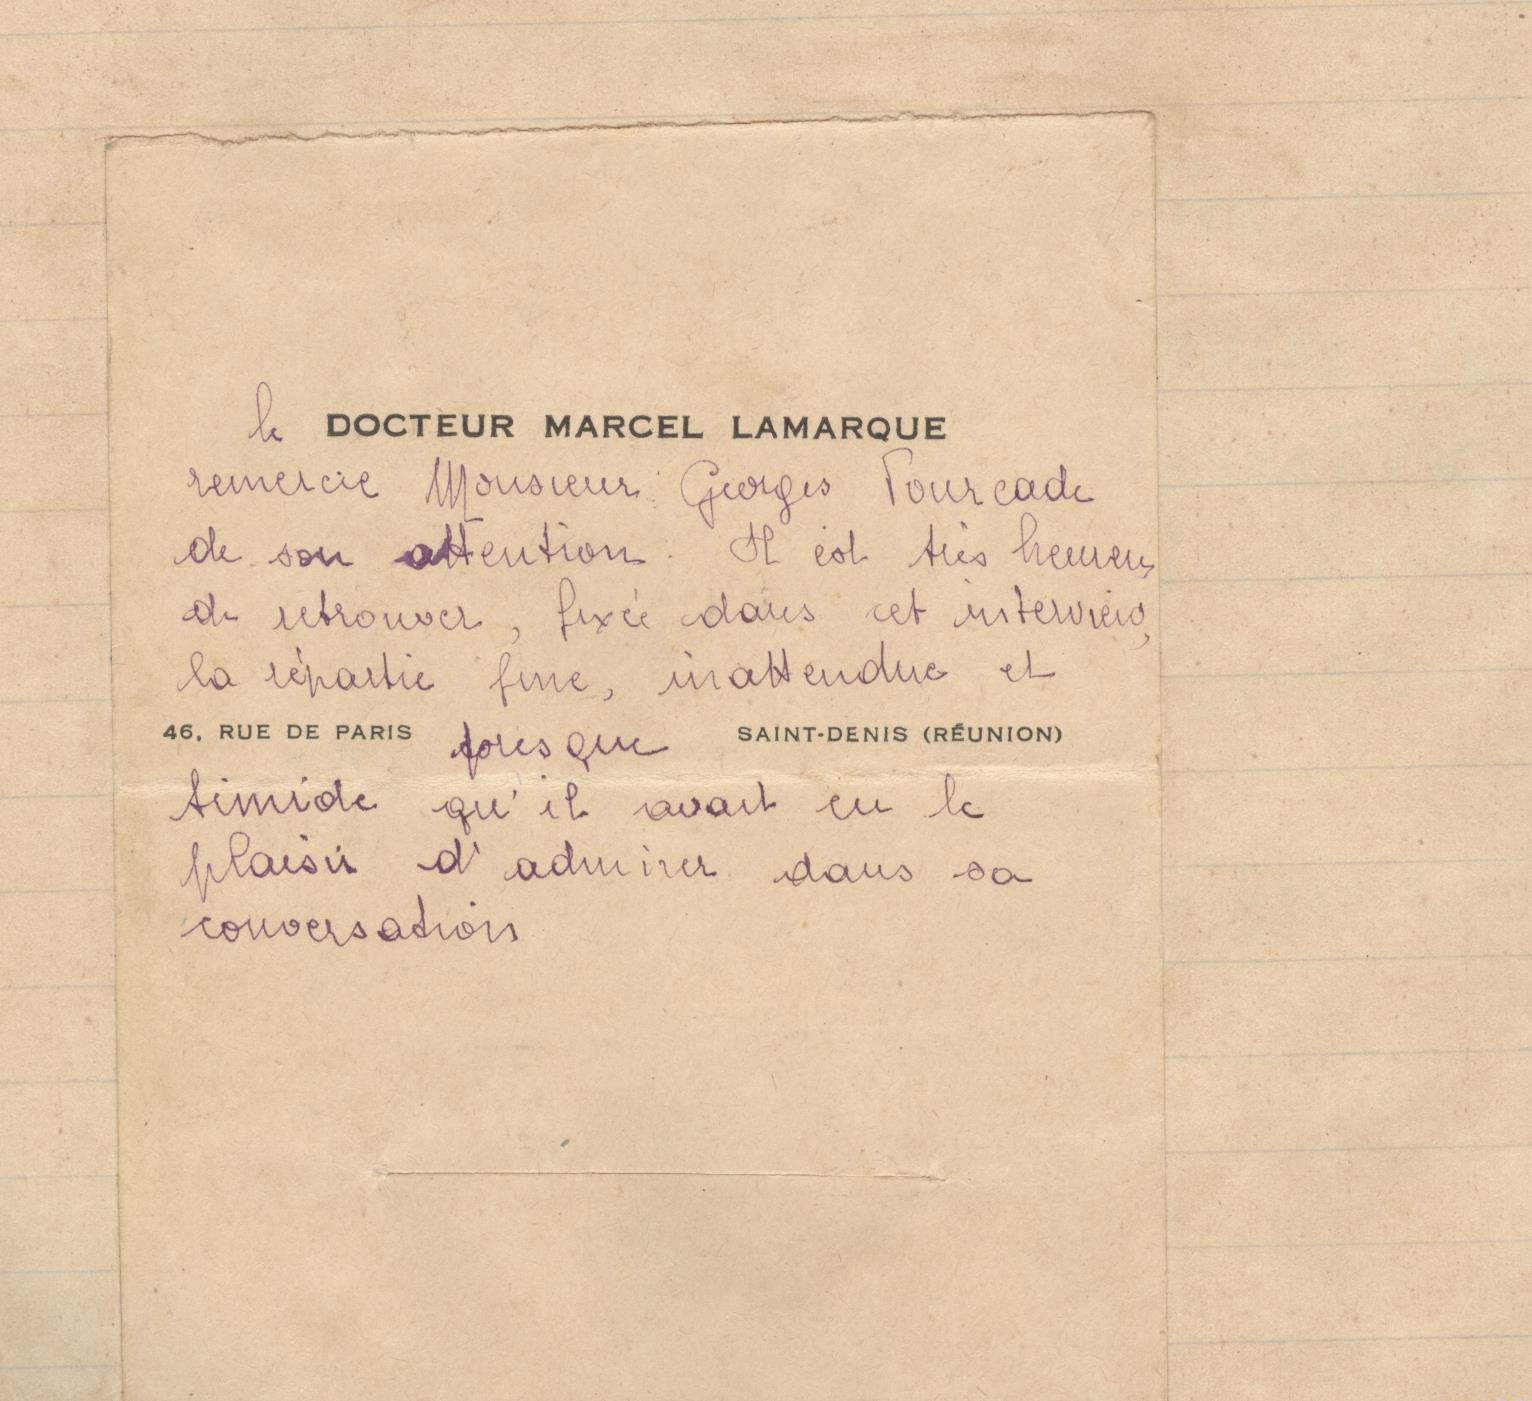 le DOCTEUR MARCEL LAMARQUE
remercie Monsieur Georges Fourcade
de son attention. Il est très heureux
de retrouver, fixée dans cet interview,
la répartie fine, inattendue et
46, RUE DE PARIS presque SAINT-DENIS (RÉUNION)
timide qu'il avait eu le
plaisir d'admirer dans sa
conversation